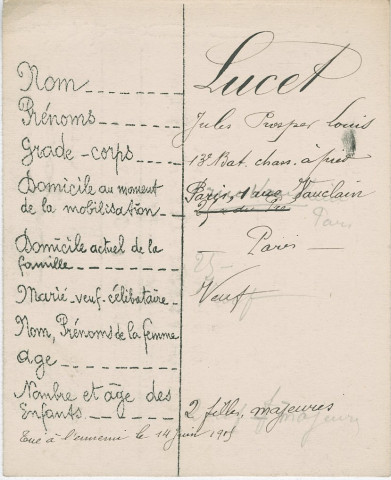 Nom Lucet
Prénoms Jules Prosper Louis
Grade-corps 13e Bat. chas. à pied
Domicile au moment
de la mobilisation Paris, 1 rue Vauclain
Paris
Domicile actuel de la
famille Paris
25
Marié-veuf-célibataire Veuf
Nom, Prénoms de la femme
age
Nombre et âge des
Enfants 2 filles, majeures
Tué à l'ennemi le 14 juin 1915